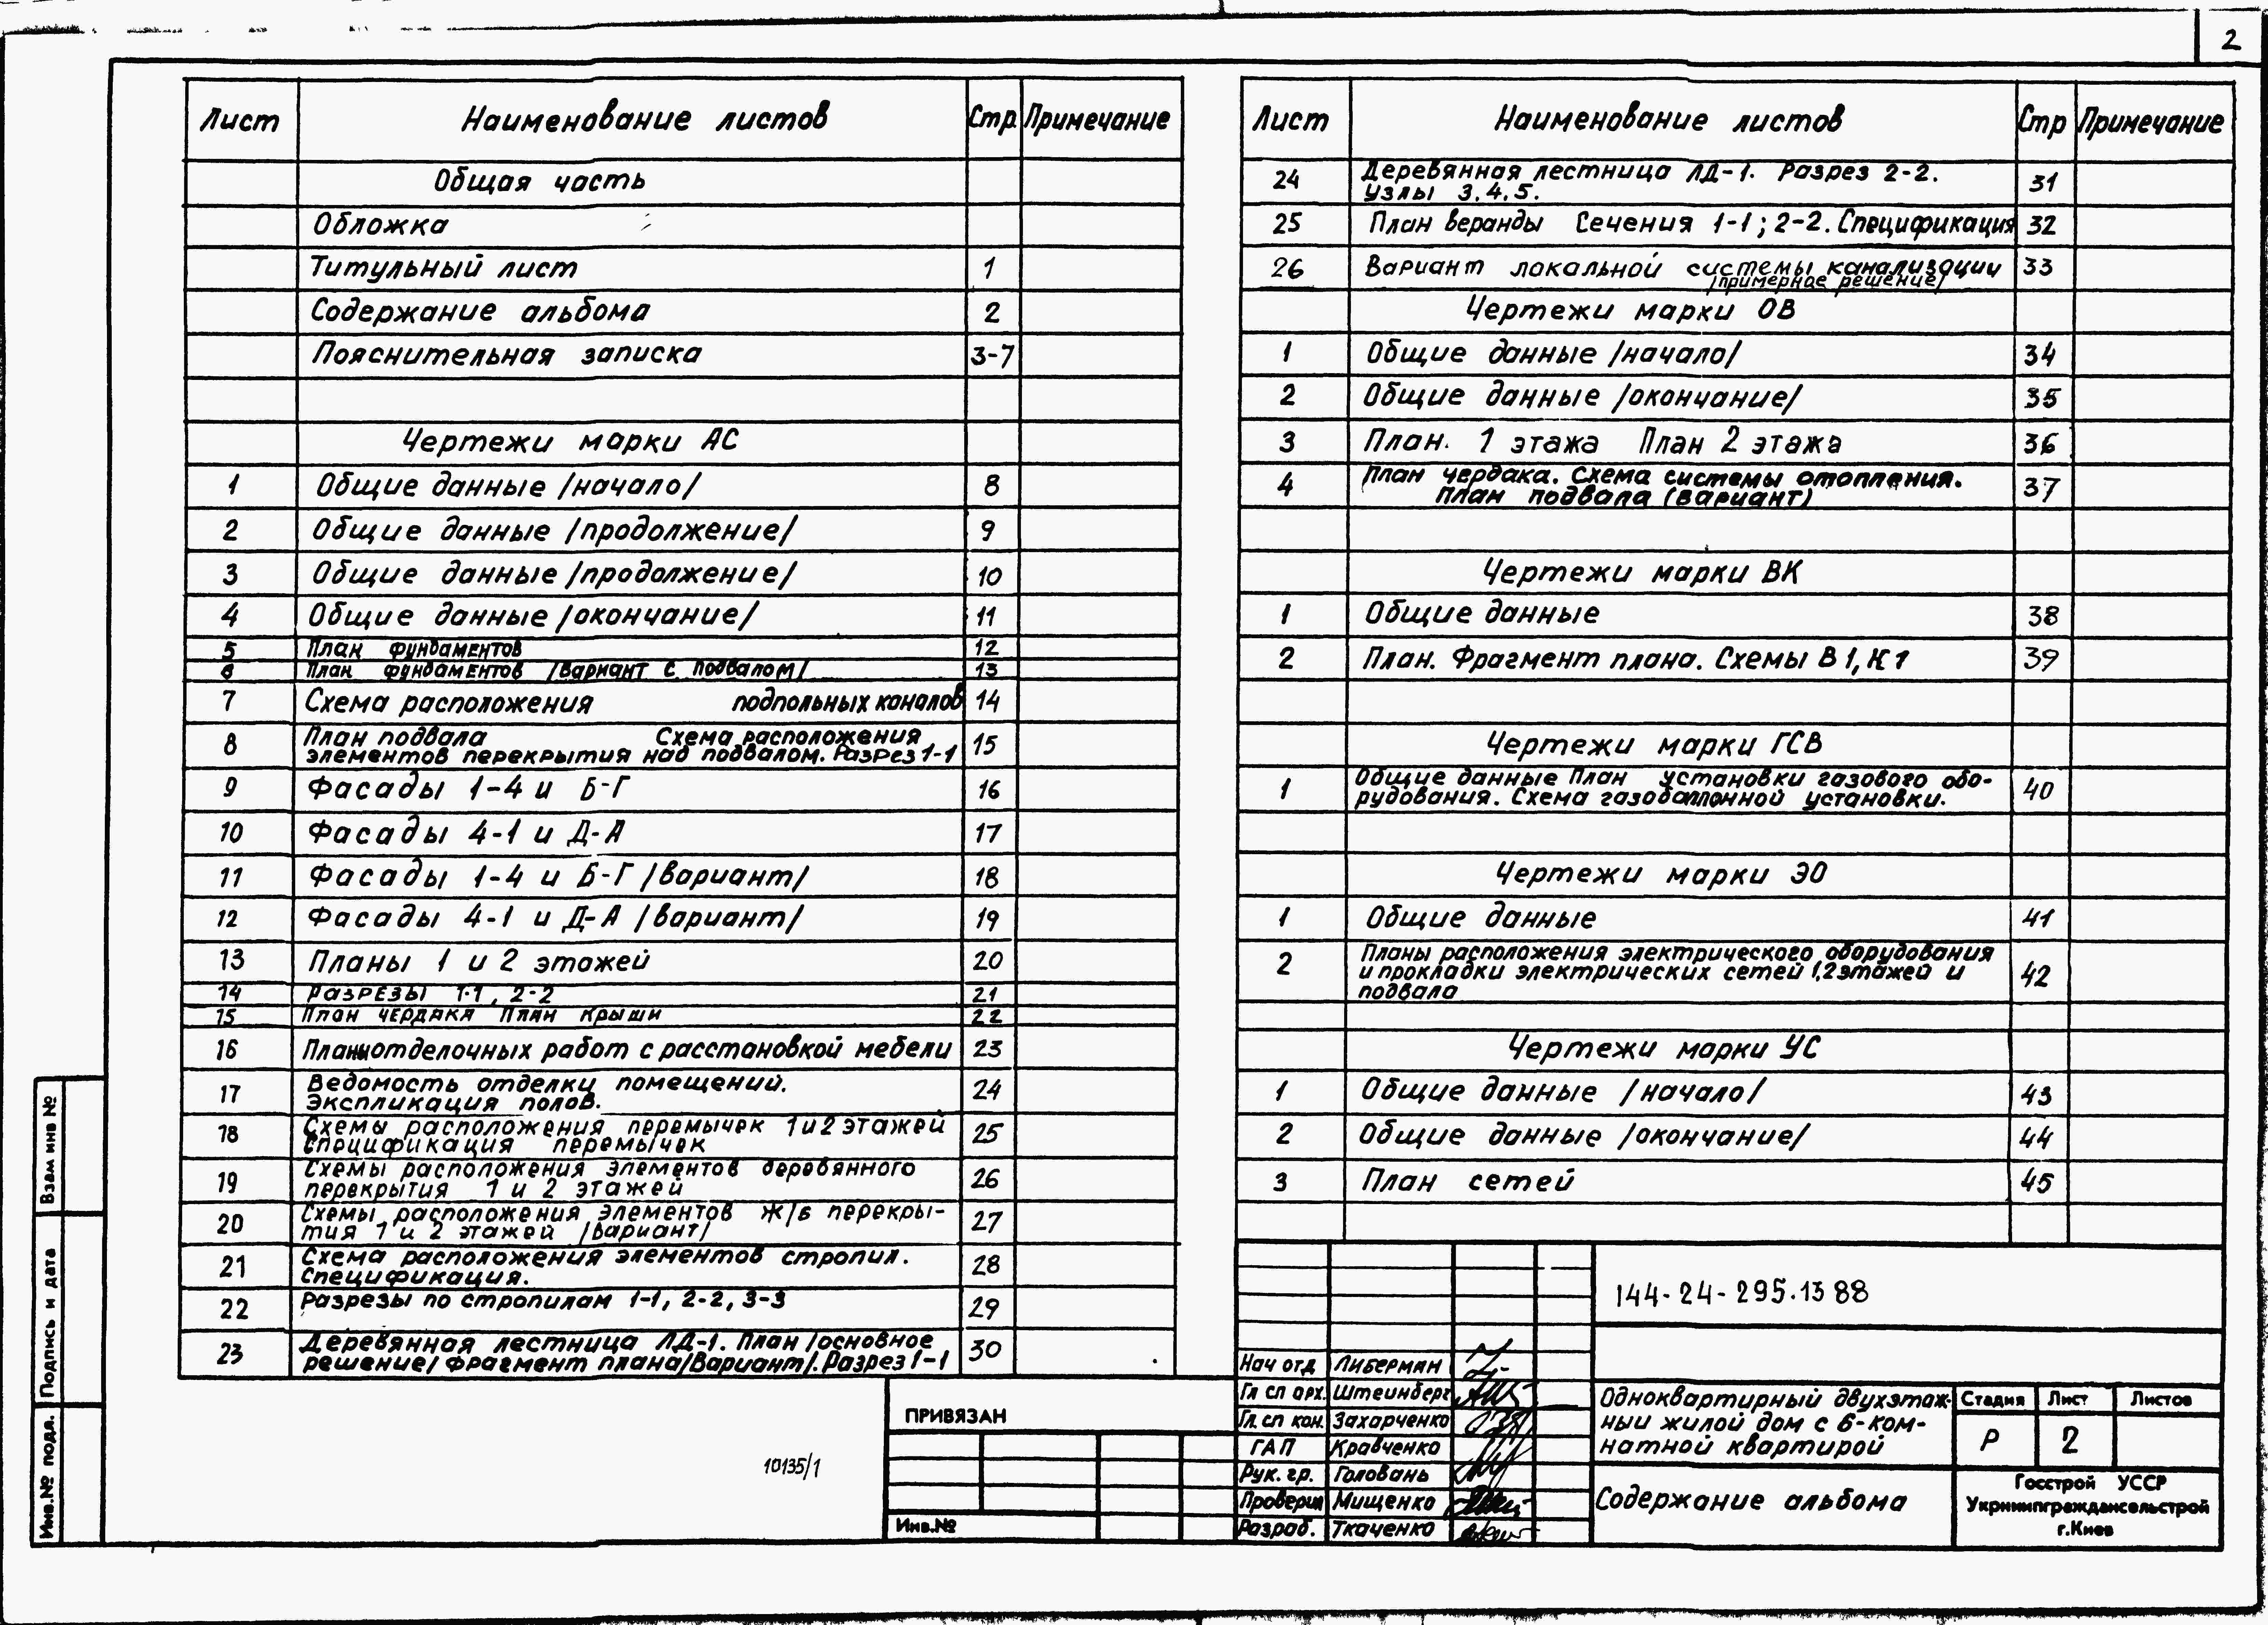 2
Лист Наименование листов Стр. Примечание
Общая часть
Обложка
Титульный лист 1
Содержание альбома 2
Пояснительная записка 3-7
Чертежи марки АС
1 Общие данные /начало/ 8
2 Общие данные /продолжение/ 9
3 Общие данные /продолжение/ 10
4 Общие данные /окончание/ 11
5 План фундаментов 12
6 План фундаментов /вариант с подвалом/ 13
7 Схема расположения подпольных каналов 14
8 План подвала Схема расположения
элементов перекрытия над подвалом. Разрез 1-1 15
9 Фасады 1-4 и Б-Г 16
10 Фасады 4-1 и Д-А 17
11 Фасады 1-4 и Б-Г /вариант/ 18
12 Фасады 4-1 и Д-А /вариант/ 19
13 Планы 1 и 2 этажей 20
14 Разрезы 1-1, 2-2 21
15 План чердака План крыши 22
16 Планы отделочных работ с расстановкой мебели 23
17 Ведомость отделки помещений.
Экспликация полов. 24
18 Схемы расположения перемычек 1 и 2 этажей
Спецификация перемычек 25
19 Схемы расположения элементов деревянного
перекрытия 1 и 2 этажей 26
20 Схемы расположения элементов ж/б перекры-
тия 1 и 2 этажей /вариант/ 27
21 Схема расположения элементов стропил.
Спецификация. 28
22 Разрезы по стропилам 1-1, 2-2, 3-3 29
23 Деревянная лестница ЛД-1. План /основное
решение/ фрагмент плана/вариант/. Разрез 1-1 30
Лист Наименование листов Стр Примечание
24 Деревянная лестница ЛД-1. Разрез 2-2.
Узлы 3.4.5. 31
25 План веранды Сечения 1-1; 2-2. Спецификация 32
26 Вариант локальной системы канализации 33
/примерное решение/
Чертежи марки ОВ
1 Общие данные /начало/ 34
2 Общие данные /окончание/ 35
3 План. 1 этажа План 2 этажа 36
4 План чердака. Схема системы отопления.
План подвала (вариант) 37
Чертежи марки ВК
1 Общие данные 38
2 План. Фрагмент плана. Схемы В1, К1 39
Чертежи марки ГСВ
1 Общие данные План установки газового обо-
рудования. Схема газобаллонной установки. 40
Чертежи марки ЭО
1 Общие данные 41
2 Планы расположения электрического оборудования
и прокладки электрических сетей 1,2 этажей и
подвала 42
Чертежи марки УС
1 Общие данные /начало/ 43
2 Общие данные /окончание/ 44
3 План сетей 45
144-24-295.13 88
Нач отд Либерман
Гл сп арх. Штейнберг
Гл. сп кон. Захарченко
ГАП Кравченко
Рук. гр. Головань
Проверил Мищенко
Разраб. Ткаченко
Одноквартирный двухэтаж-
ный жилой дом с 6-ком-
натной квартирой
Стадия Лист Листов
Р 2
Содержание альбома
Госстрой УССР
Укрниипграждансельстрой
г.Киев
ПРИВЯЗАН
Инв.№
10135/1
Взам инв №
Подпись и дата
Инв.№ подл.